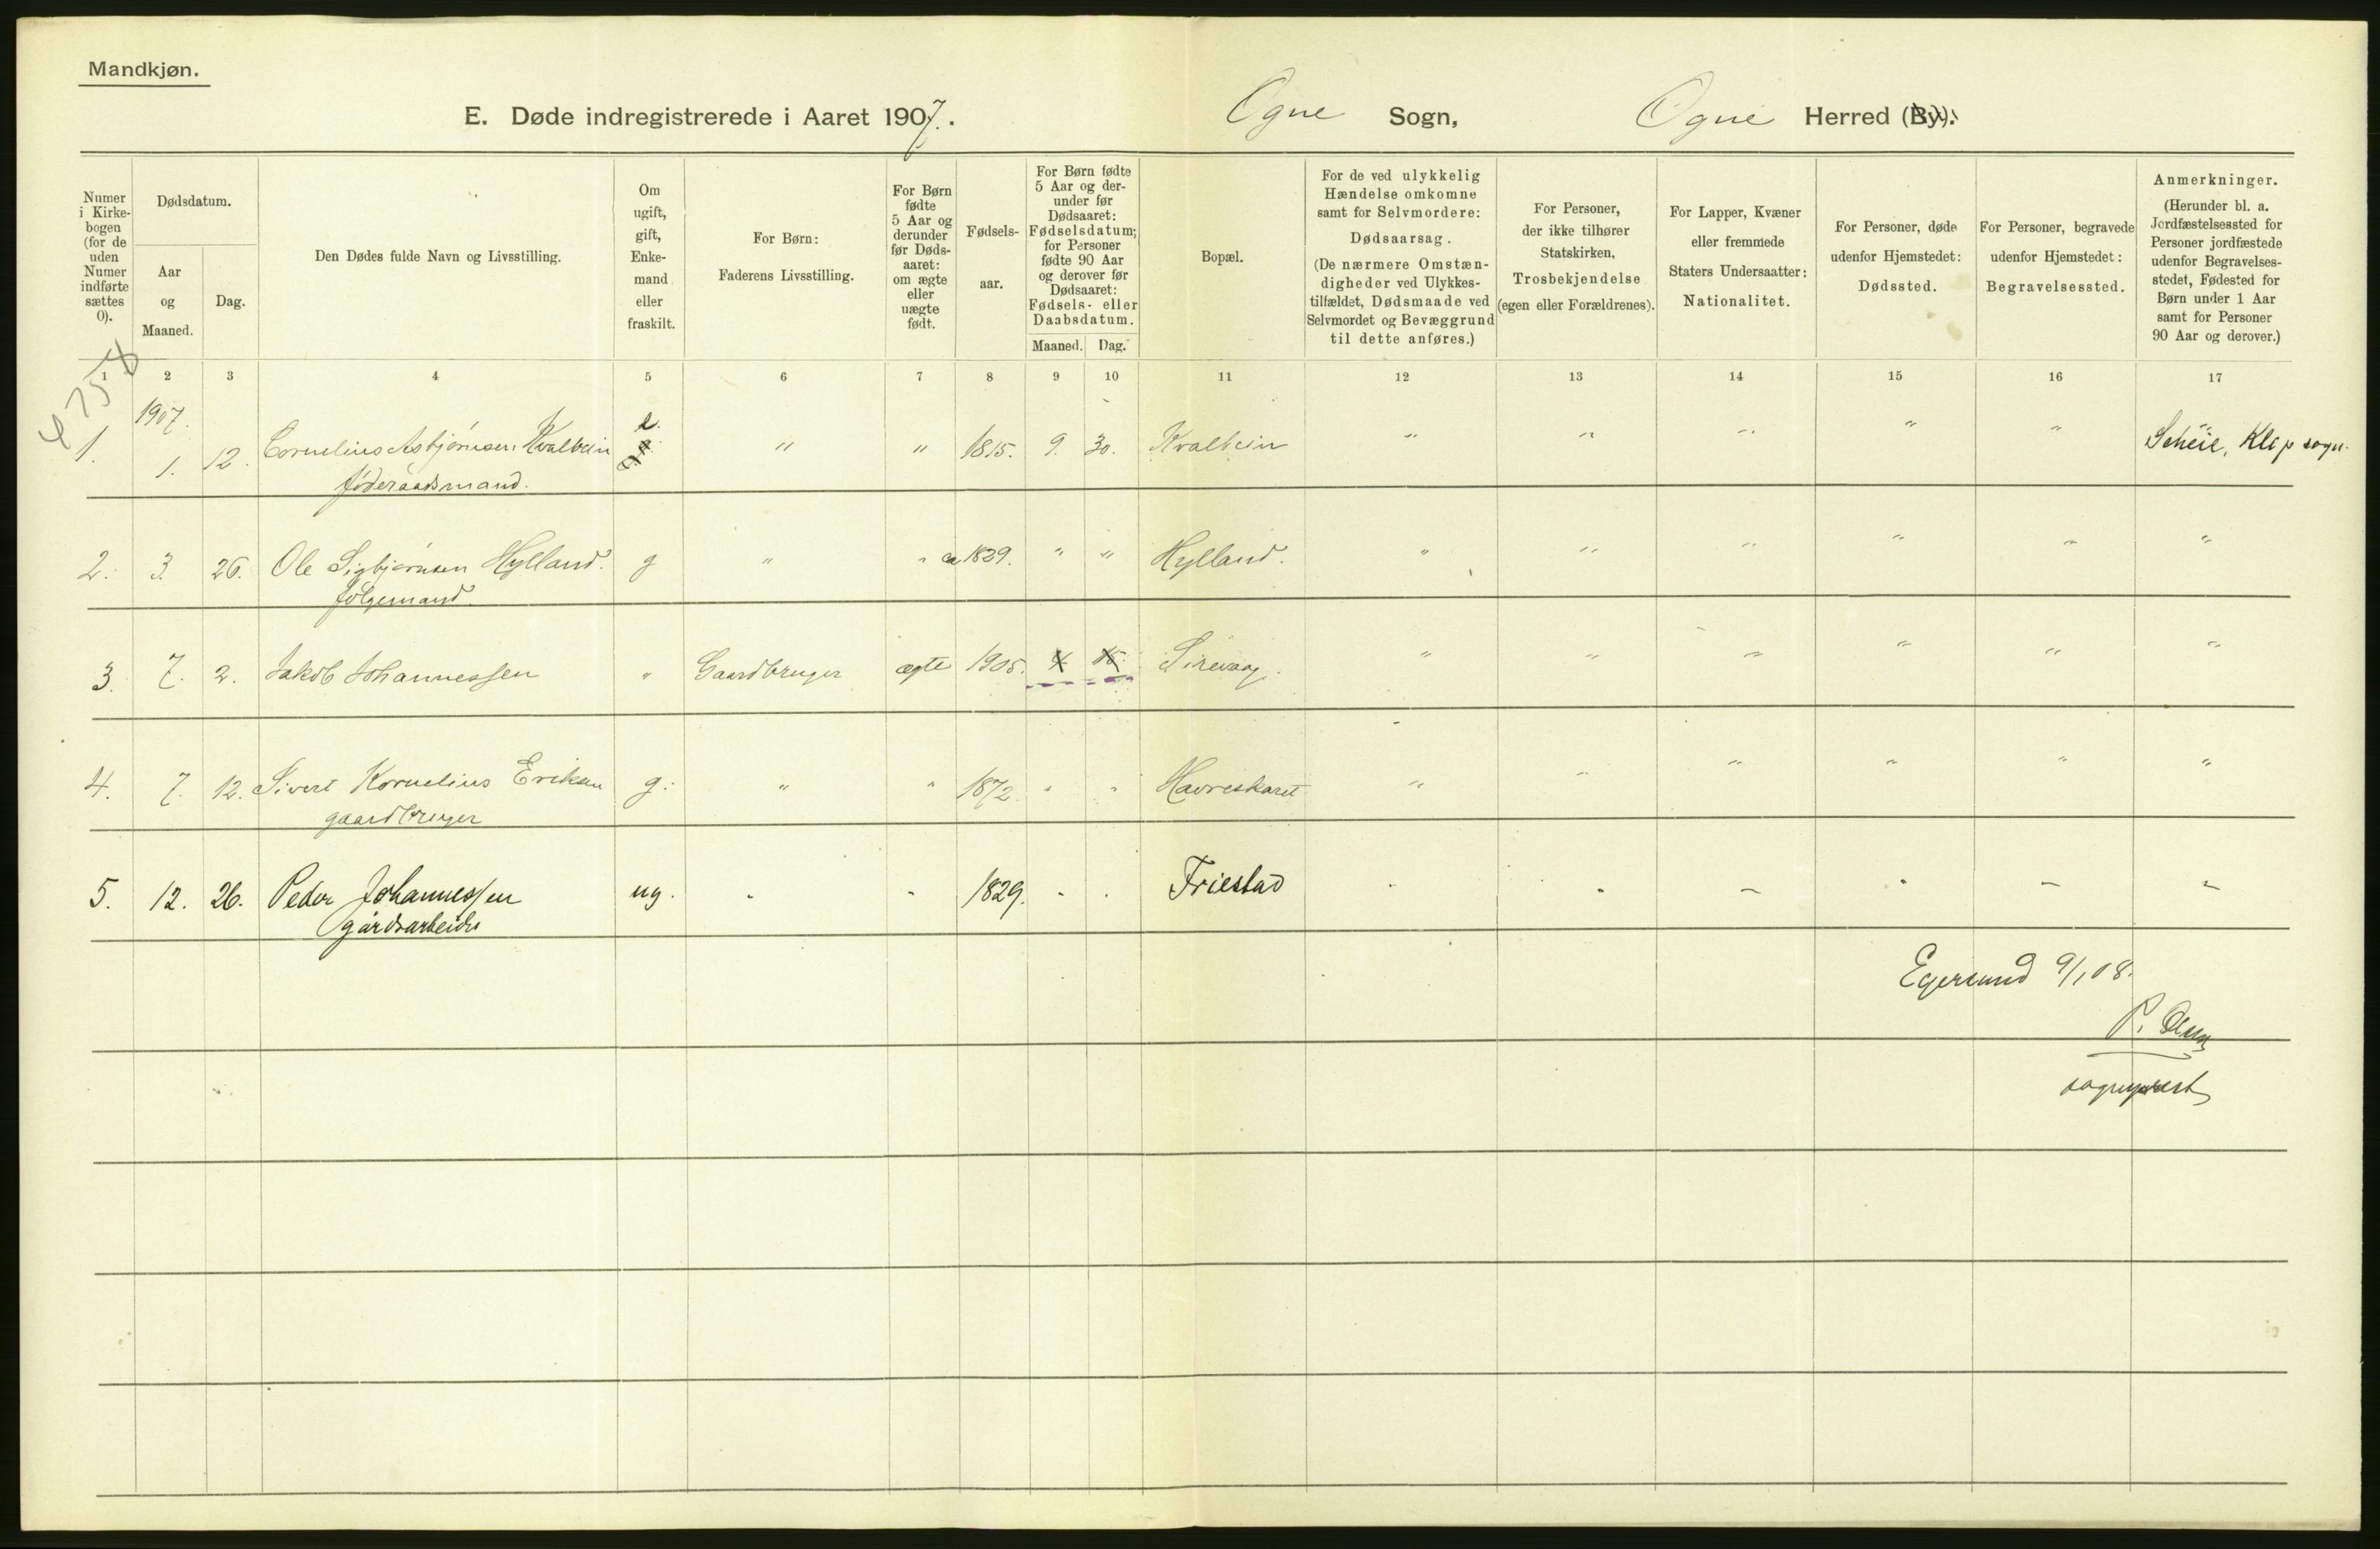 Mandkjøn.
E. Døde indregistrerede i Aaret 1907. Ogne Sogn, Ogne Herred (By).
Numer i Kirkebogen (for de uden Numer indførte sættes 0).
Dødsdatum.
Aar og Maaned.
Dag.
Den Dødes fulde Navn og Livsstilling.
Om ugift, gift, Enkemand eller fraskilt.
For Børn: Faderens Livsstilling.
For Børn fødte 5 Aar og derunder før Dødsaaret: om ægte eller uægte født.
Fødselsaar.
For Børn fødte 5 Aar og derunder før Dødsaaret: Fødselsdatum; for Personer fødte 90 Aar og derover før Dødsaaret: Fødsels- eller Daabsdatum.
Maaned. Dag.
Bopæl.
For de ved ulykkelig Hændelse omkomne samt for Selvmordere: Dødsaarsag. (De nærmere Omstændigheder ved Ulykkestilfældet, Dødsmaade ved Selvmordet og Bevæggrund til dette anføres.)
For Personer, der ikke tilhører Statskirken, Trosbekjendelse (egen eller Forældrenes).
For Lapper, Kvæner eller fremmede Staters Undersaatter: Nationalitet.
For Personer, døde udenfor Hjemstedet: Dødssted.
For Personer, begravede udenfor Hjemstedet: Begravelsessted.
Anmerkninger. (Herunder bl. a. Jordfæstelsessted for Personer jordfæstede udenfor Begravelsesstedet, Fødested for Børn under 1 Aar samt for Personer 90 Aar og derover.)
1 2 3 4 5 6 7 8 9 10 11 12 13 14 15 16 17
1907.
1. 1. 12. Cornelius Asbjørnsen Kvalbein e. " " 1815. 9. 30. Kvalbein " " " " " Scheie, Klep sogn.
føderaadsmand.
2. 3. 26. Ole Sigbjørnsen Hylland. g " " ca 1829. " " Hylland. " " " " " "
følgemand.
3. 7. 2. Jakob Johannessen " Gaardbruger ægte 1905. 4 15. Sirevaag. " " " " " "
4. 7. 12. Sivert Kornelius Eriksen g. " " 1872. " " Havreskaret " " " " " "
gaardbruger
5. 12. 26. Peder Johannessen ug. " " 1829. " " Friestad " " " " " "
gårdsarbeider
Egersund 9/1 08.
P. Olsen
sogneprest